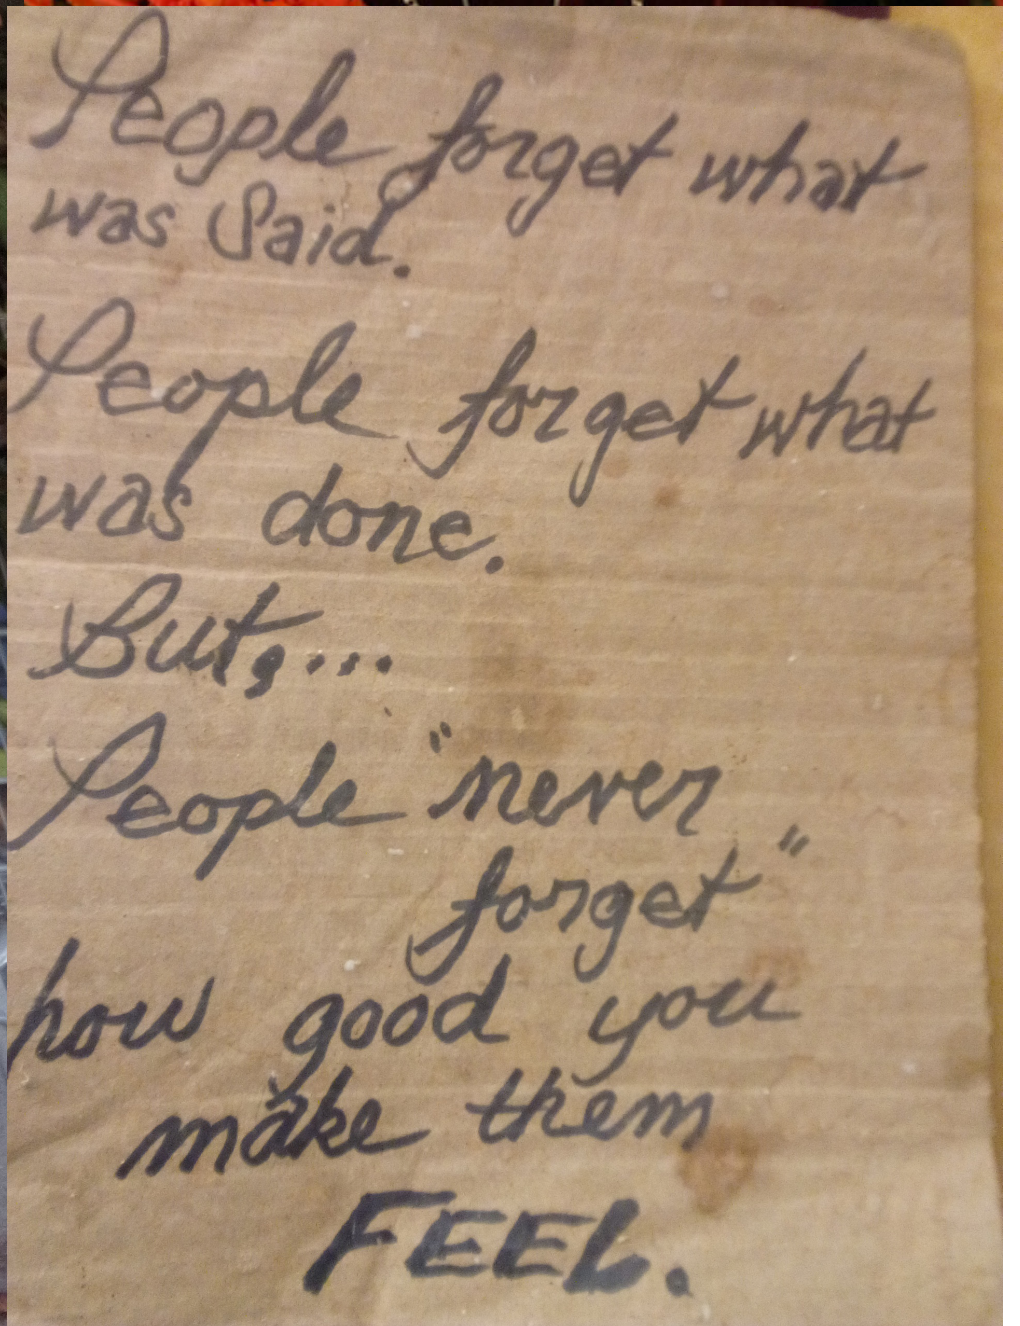 People forget what
was Said.
People forget what
was done.
But,...
People "never
forget"
how good you
make them
FEEL.